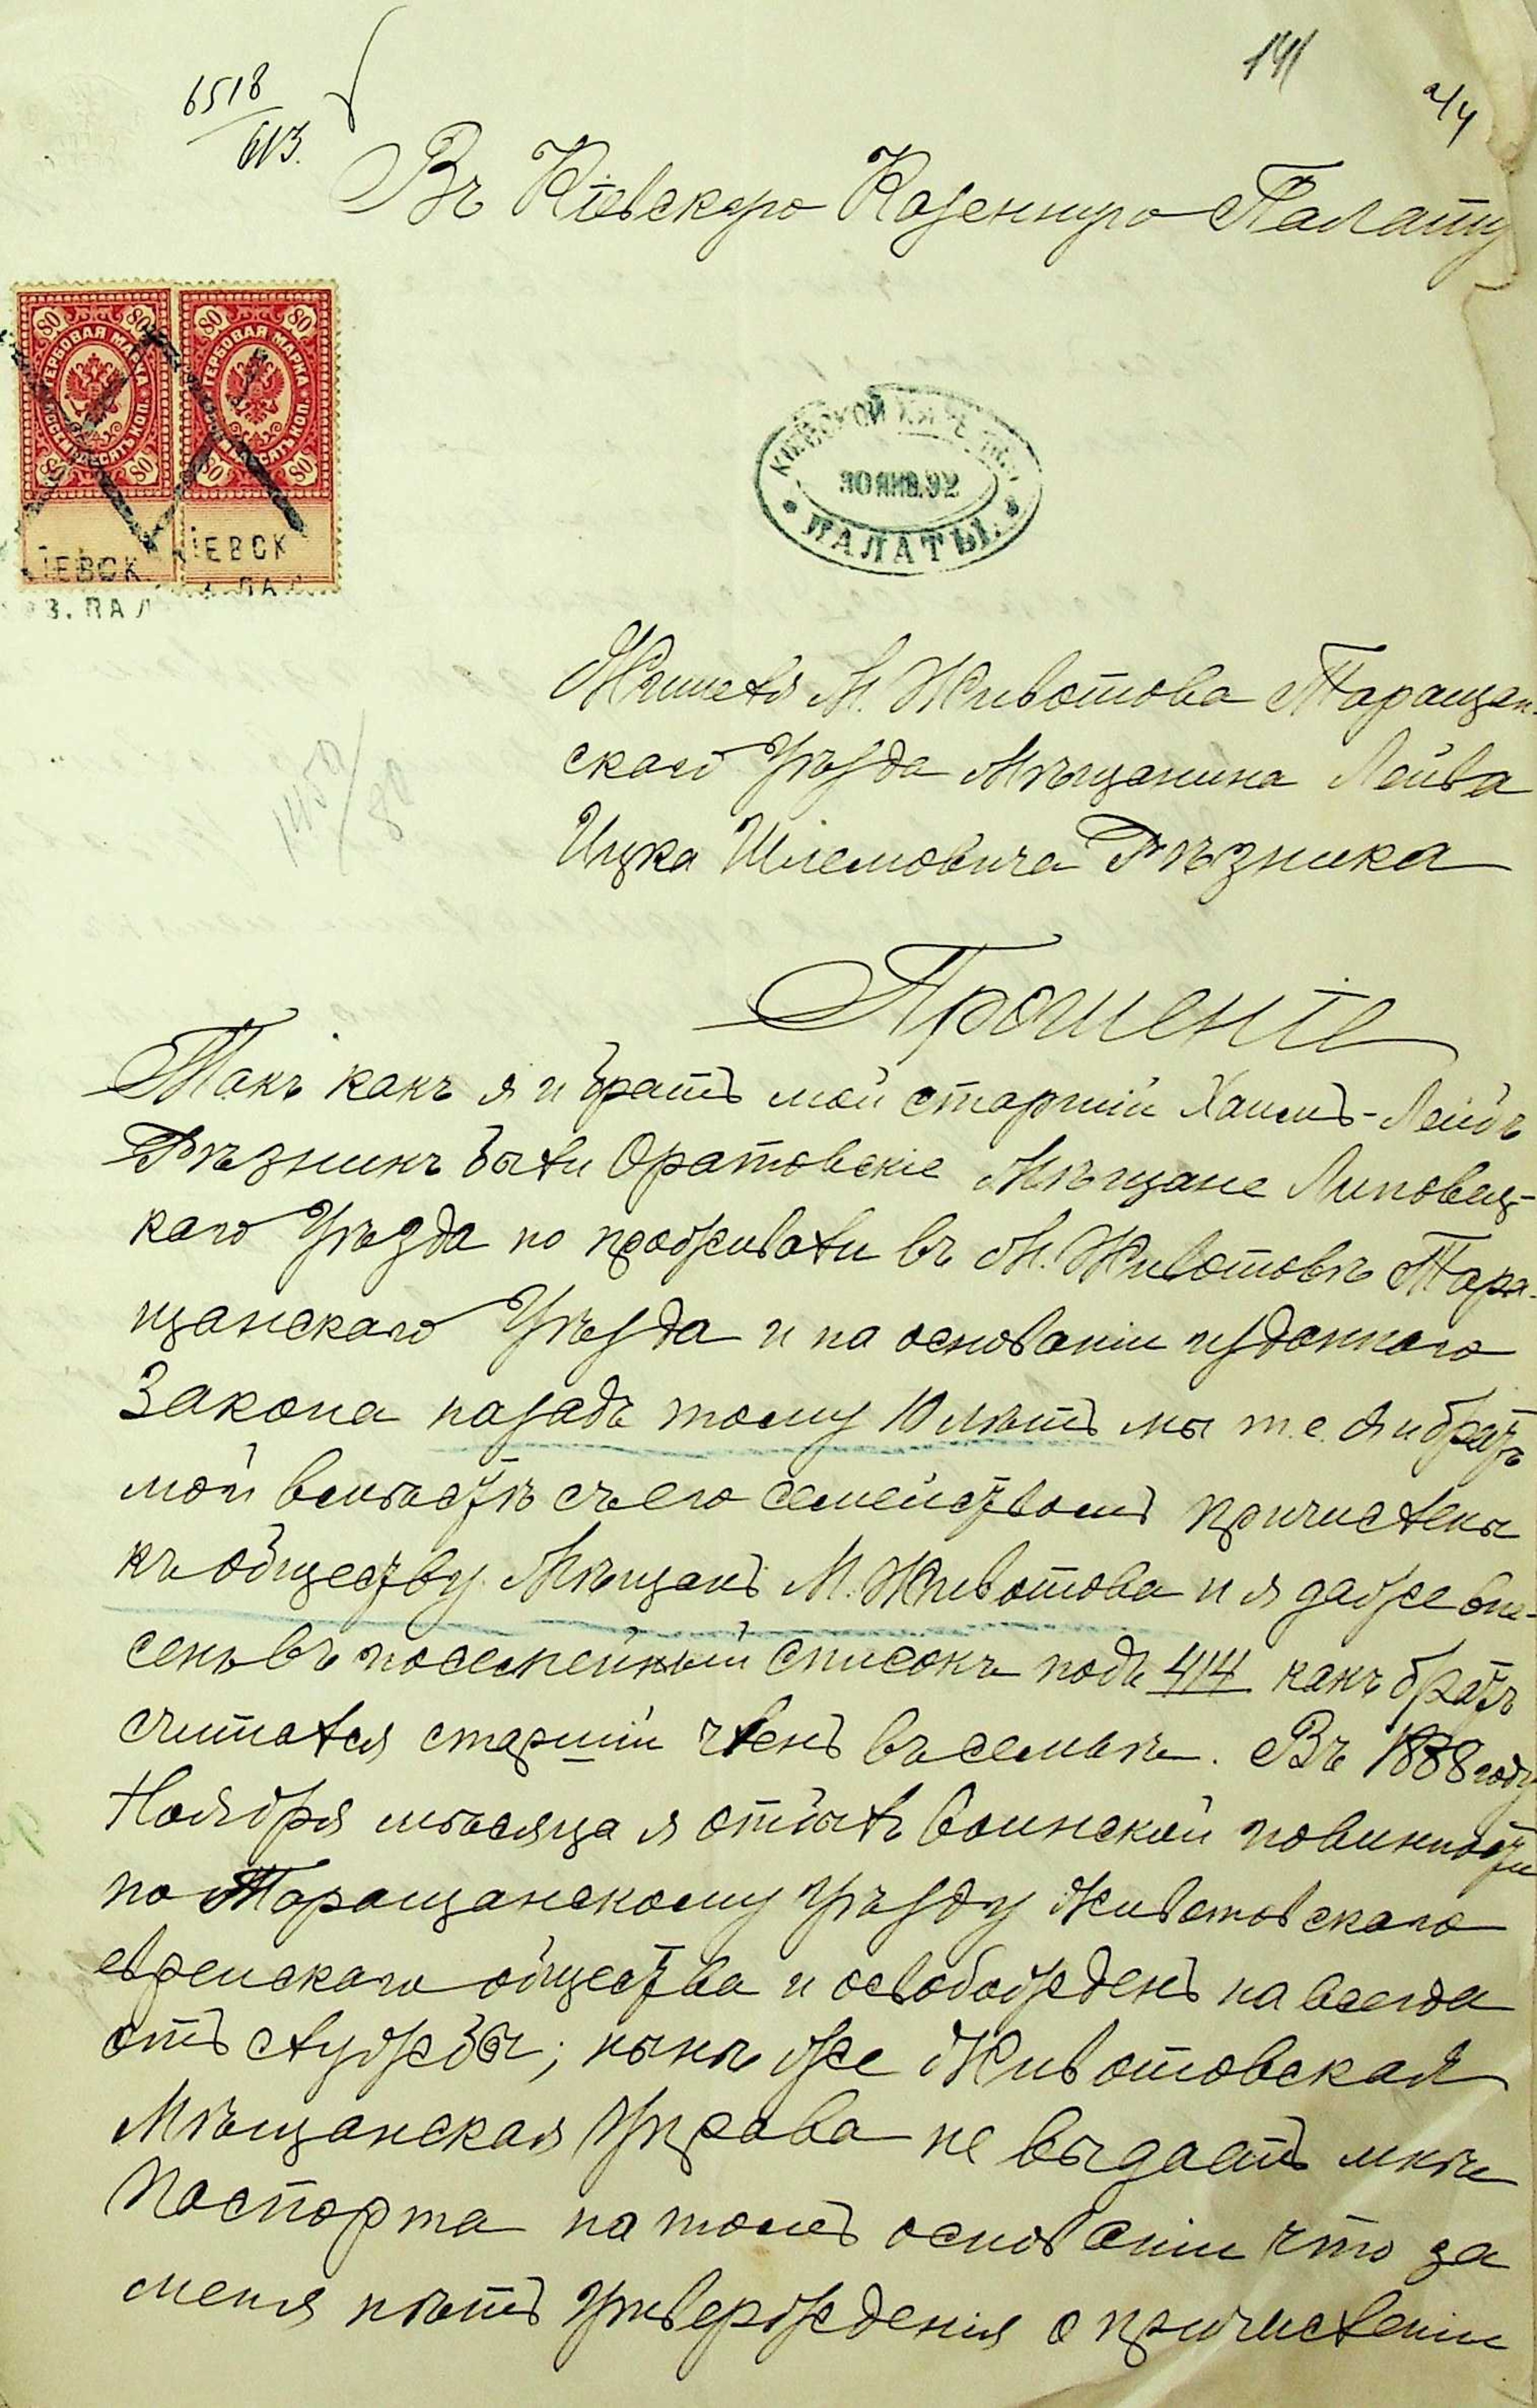 141
а/ч
6518
613.
Въ Кіевскую Казенную Палату
80 80
ГЕРБОВАЯ МАРКА
ВОСЕМЬДЕСЯТЬ КОП.
80 80
80 80
ГЕРБОВАЯ МАРКА
ВОСЕМЬДЕСЯТЬ КОП.
80 80
ІЕВСК
ІЕВСК
З. ПАЛ
З. ПАЛ
КІЕВСКОЙ
30 ЯНВ. 92
ПАЛАТЫ.
Жителя М. Животова Таращан-
скаго Уѣзда Мѣщанина Лейба
Ицка Шлемовича Рѣзника
1450/80
Прошеніе
Такъ какъ я и братъ мой старшій Хаимъ-Лейбъ
Рѣзникъ были Оратовскіе Мѣщане Липовец-
каго Уѣзда но проживали въ М. Животовѣ Тара-
щанскаго Уѣзда и на основаніи изданнаго
Закона назадъ тому 10 лѣтъ мы т.е. я и братъ
мой вмѣстѣ съ его семействомъ причислены
къ обществу Мѣщанъ М. Животова и я даже вне-
сенъ въ посемейный списокъ подъ 414 какъ братъ
считался старшій членъ въ семьѣ. Въ 1888 году
Ноября мѣсяца я отбылъ воинской повинности
по Таращанскому уѣзду Животовскаго
еврейскаго общества и освобожденъ на всегда
отъ службы; нынѣ же Животовская
Мѣщанская Управа не выдаетъ мнѣ
Паспорта на томъ основаніи что за
меня нѣтъ Утвержденія о причисленіи